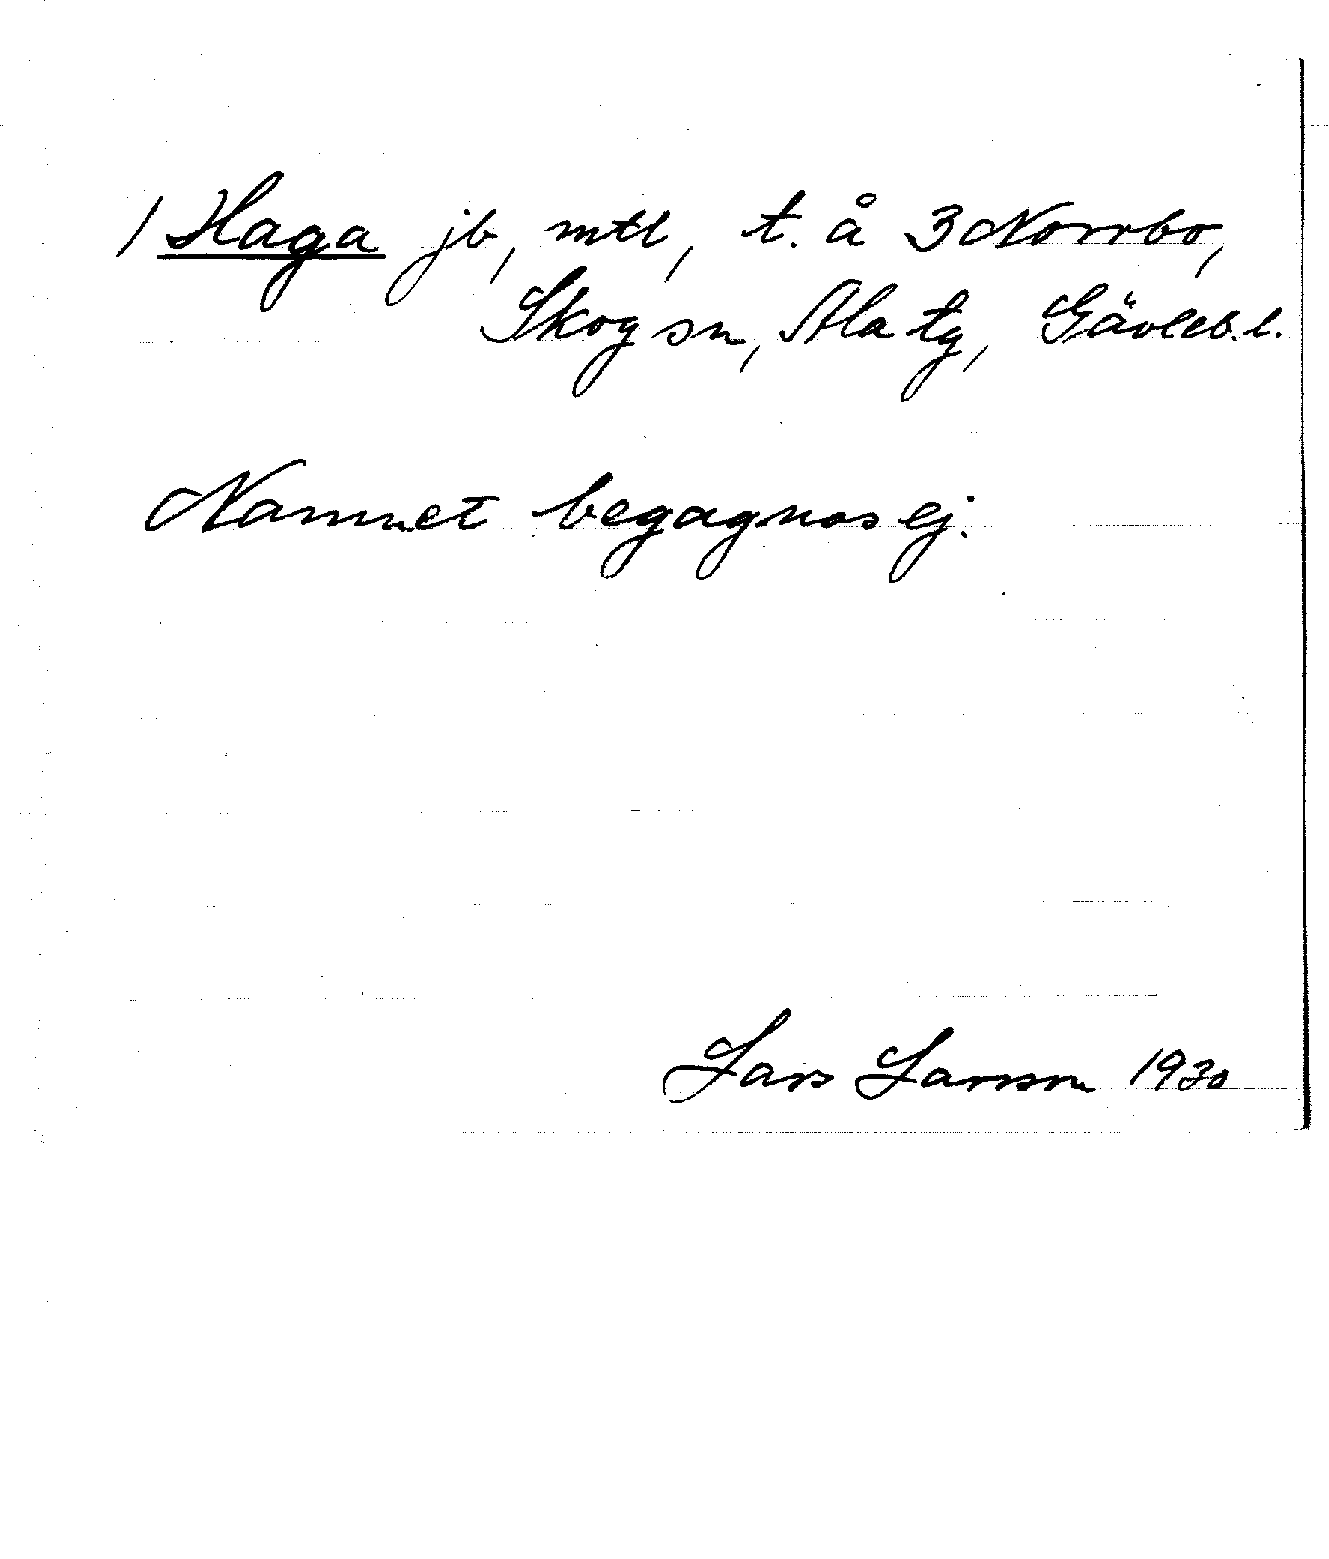 1 Haga jb, mtl, t. å 3 Norrbo,
Skog sn, Ala tg, Gävleb. l.
Namnet begagnas ej.
Lars Larsson 1930